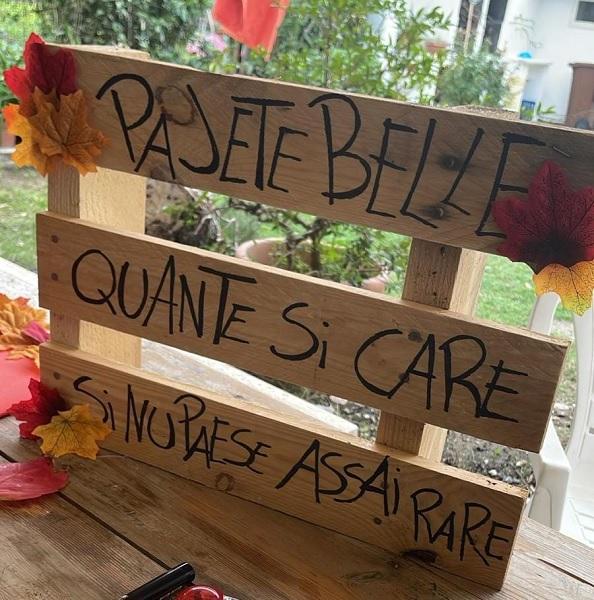 PAJETE BELLE
QUANTE Si CARE
Si NU PAESE ASSAi RARE